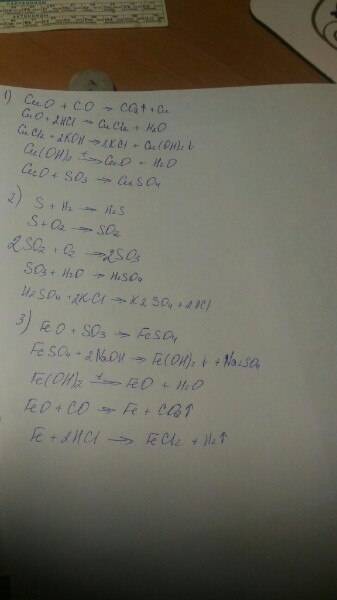 1) CuO + CO → CO2↑ + Cu
CuO + 2HCl → CuCl2 + H2O
CuCl2 + 2KOH → 2KCl + Cu(OH)2↓
Cu(OH)2 →t CuO + H2O
CuO + SO3 → CuSO4
2) S + H2 → H2S
S + O2 → SO2
2SO2 + O2 → 2SO3
SO3 + H2O → H2SO4
H2SO4 + 2KCl → K2SO4 + 2HCl
3) FeO + SO3 → FeSO4
FeSO4 + 2NaOH → Fe(OH)2↓ + Na2SO4
Fe(OH)2 →t FeO + H2O
FeO + CO → Fe + CO2↑
Fe + 2HCl → FeCl2 + H2↑